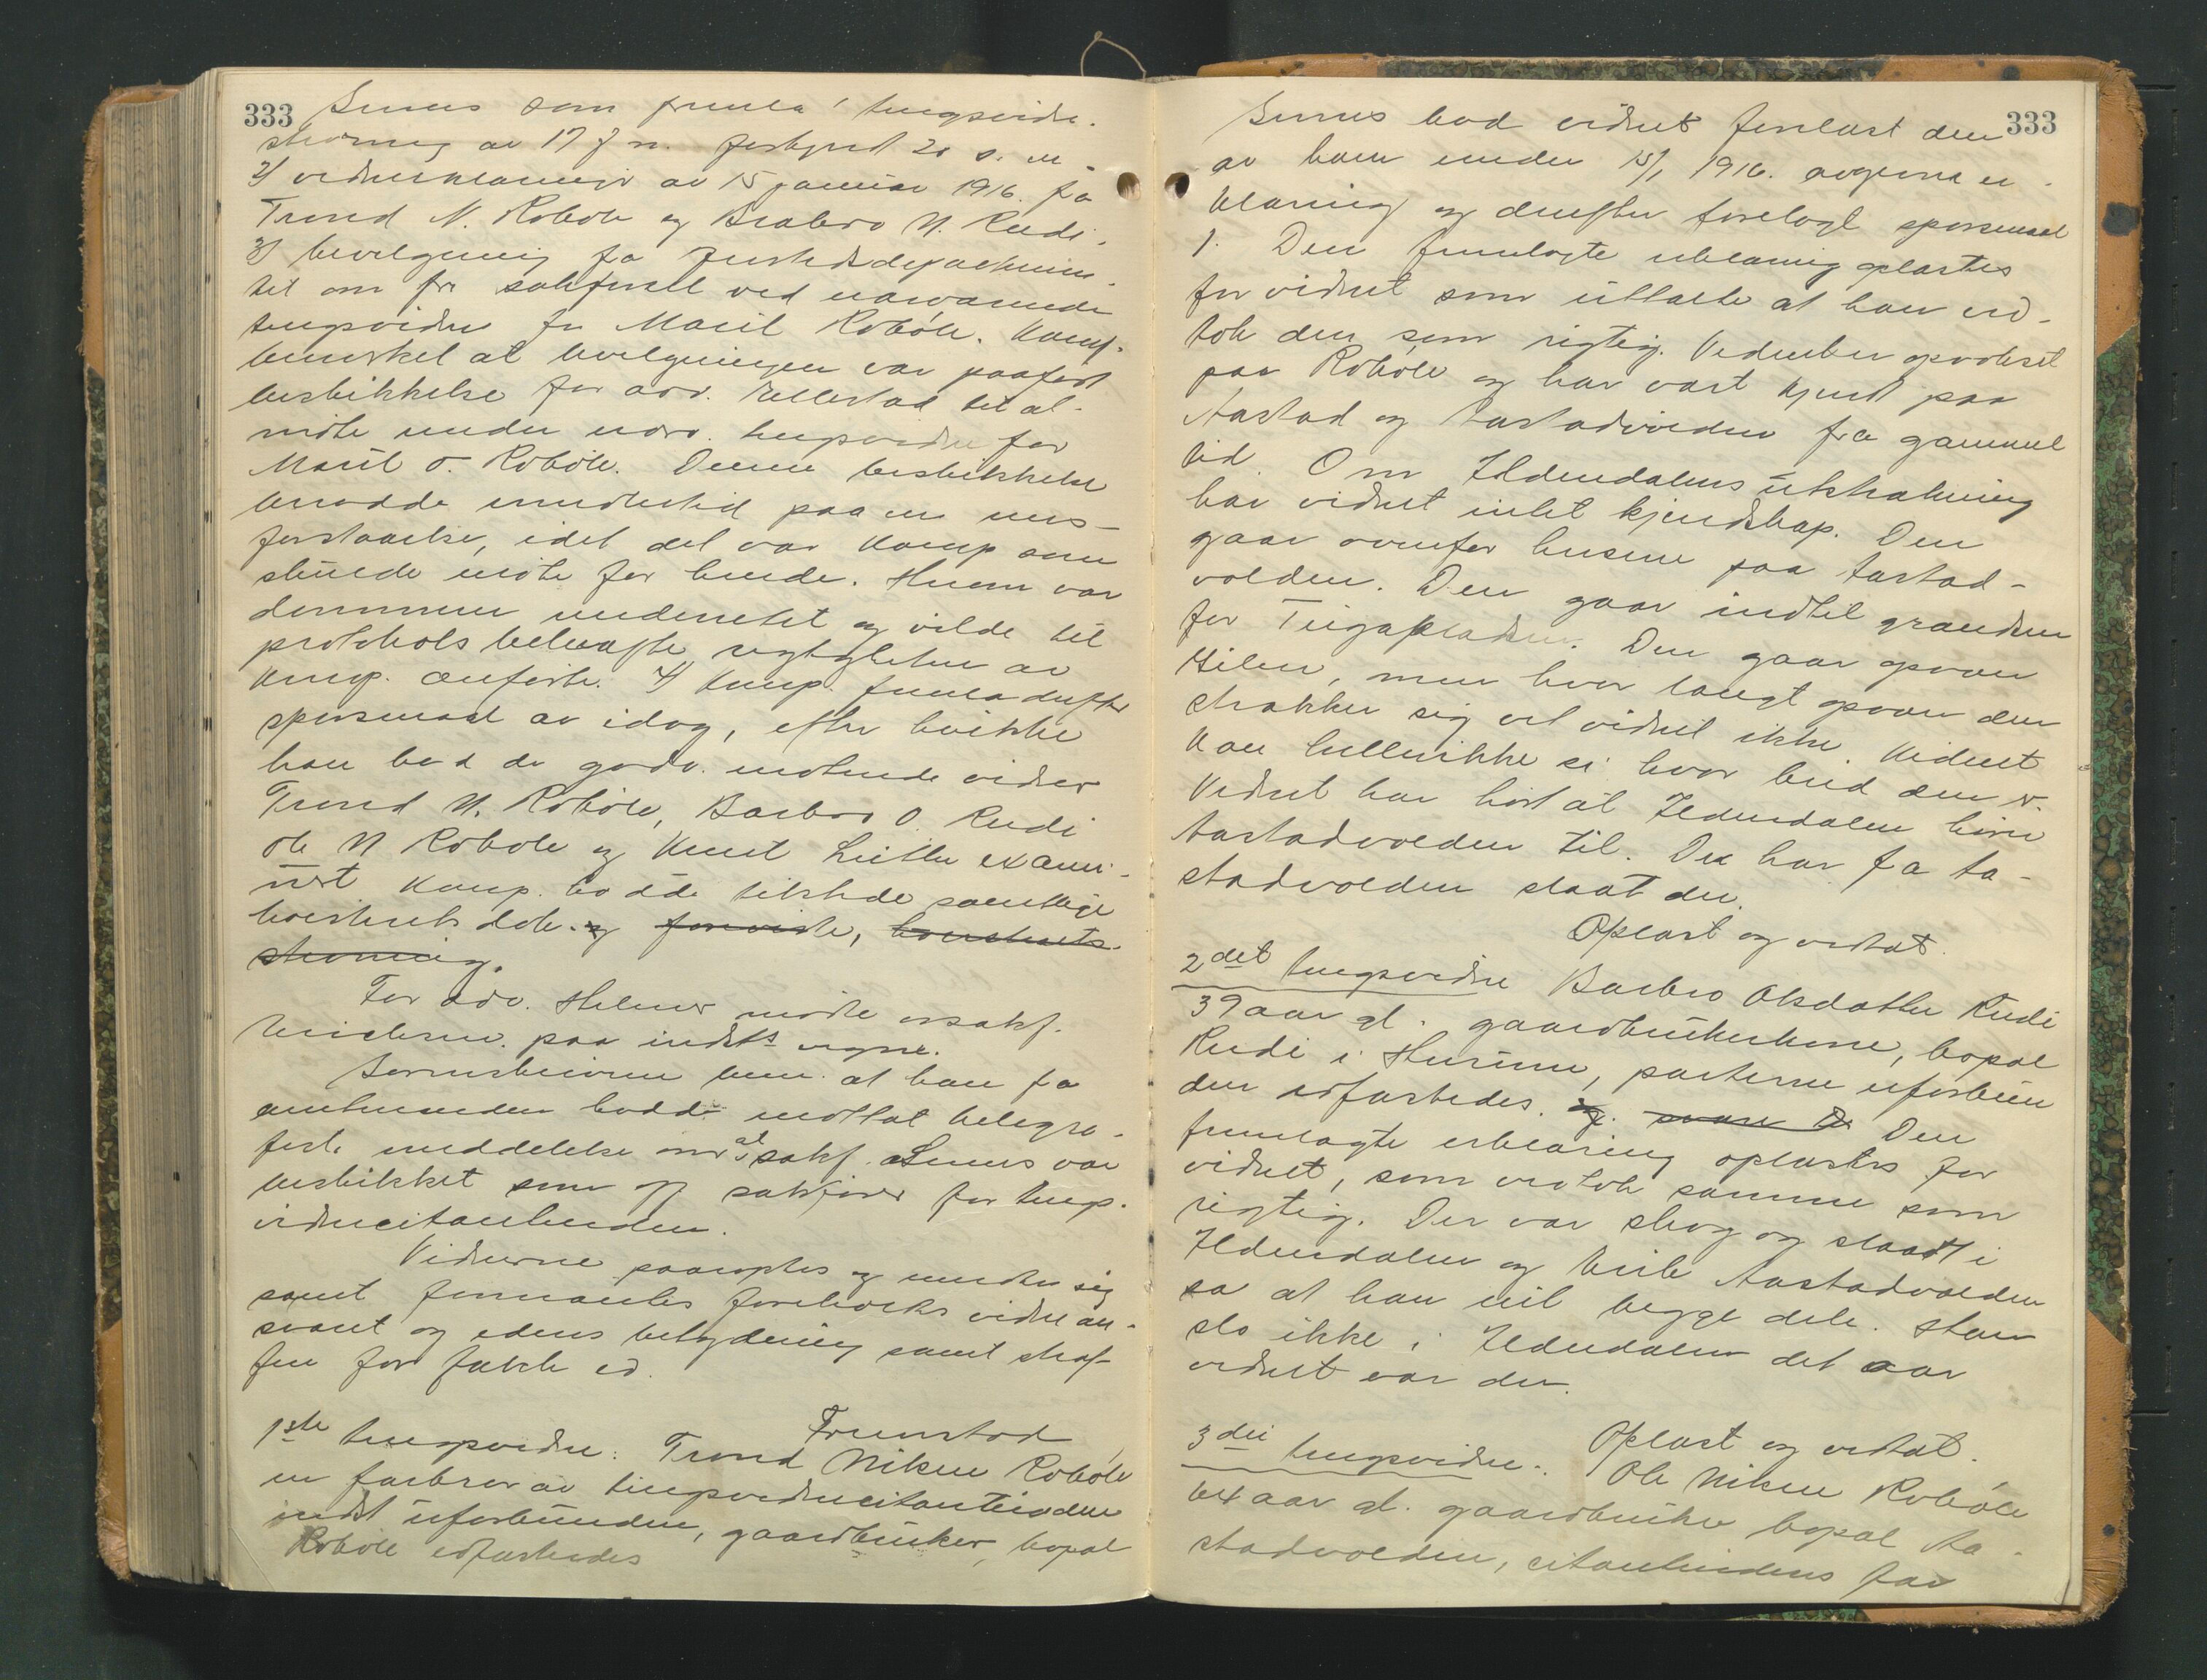 333
Sunes som fremla 1 tingsvidne-
stevning av 17 f m. forkynt 20 s. m
2) vidneerklæringer av 15 januar 1916 fra
Trond N. Robøle og Barbro N. Rudi.
3) bevilgning fra Justisdepartemen-
tet om fri sakførsel ved nærværende
tingsvidne for Marit Robøle. Komp.
bemerket at bevilgningen var paaført
beskikkelse for adv. Tellestad til at
møte under nærv. tingsvidne for
Marit O. Robøle. Denne beskikkelse
berodde imidlertid paa en mis-
forstaaelse, idet det var Komp som
skulde møte for hende. Herom var
dommeren underrettet og vilde til
protokols bekræfte rigtigheten av
Komp. anførte. 4) Komp. fremla drøfte
spørsmaal av idag, efter hvilke
han bad de godv. møtende vidner
Trond N. Robøle, Barbro O. Rudi
Ole N Robøle og Knut Lutler exami-
nert Komp. hadde tilstede samtlige
høiesterets dok. og foreviste, høiesterets
stevning.
For adv. Helmer møtte osakf.
paa indst's vegne.
Sorenskriveren bem. at han fra
amtmanden hadde mottat telegra-
fisk meddelelse om at sakf. Sunes var
beskikket som off sakfører for tings-
vidnecitantinden.
Vidnerne paaroptes og meldte sig
samt formantes foreholdtes vidnean-
svaret og edens betydning samt straf-
fen for falsk ed.
Fremstod
1ste tingsvidne: Trond Nilsen Robøle,
en farbror av tingsvidnecitantinden
indst uforbunden, gaardbruker, bopæl
Robøle edfæstedes
333
Sunes bad vidnet forelæst den
av ham under 15/1 1916. avgivne er-
klæring og derefter forelagt spørsmaal
1. Den fremlagte erklæring oplæstes
for vidnet som uttalte at han ved-
tok den som rigtig. Vedneber opvokset
paa Robøle og har vært kjent paa
Aastad og Aastadvolden fra gammel
tid. Om Ildendalens utstrækning
har vidnet intet kjendskap. Den
gaar ovenfor husene paa Aastad-
volden. Den gaar indtil grændsen
for Teigapladsen. Den gaar opover
Hilen, men hvor langt opover den
strækker sig vet vidnet ikke. Vidnet
kan hellerikke si hvor bred den er.
Vidnet har hørt at Ildendalen hører
Aastadvolden til. De har fra Aa-
stadvolden slaat der.
Oplæst og vedtat.
2det tingsvidne Barbro Olsdatter Rudi
39 aar gl. gaardbrukerkone, bopæl
Rudi i Hurum, parterne uforbun
den edfæstedes. og. svare D Den
fremlagte erklæring oplæstes for
vidnet, som vedtok samme som
rigtig. Der var skog og slaatt i
Ildendalen og Aastadvolden
sa at han eil begge dele. Han
slo ikke i Ildendalen det aar
vidnet var der.
Oplæst og vedtat.
3die tingsvidne: Ole Nilsen Robøle
64 aar gl. gaardbruker bopæl Aa-
stadvolden, citantindens far